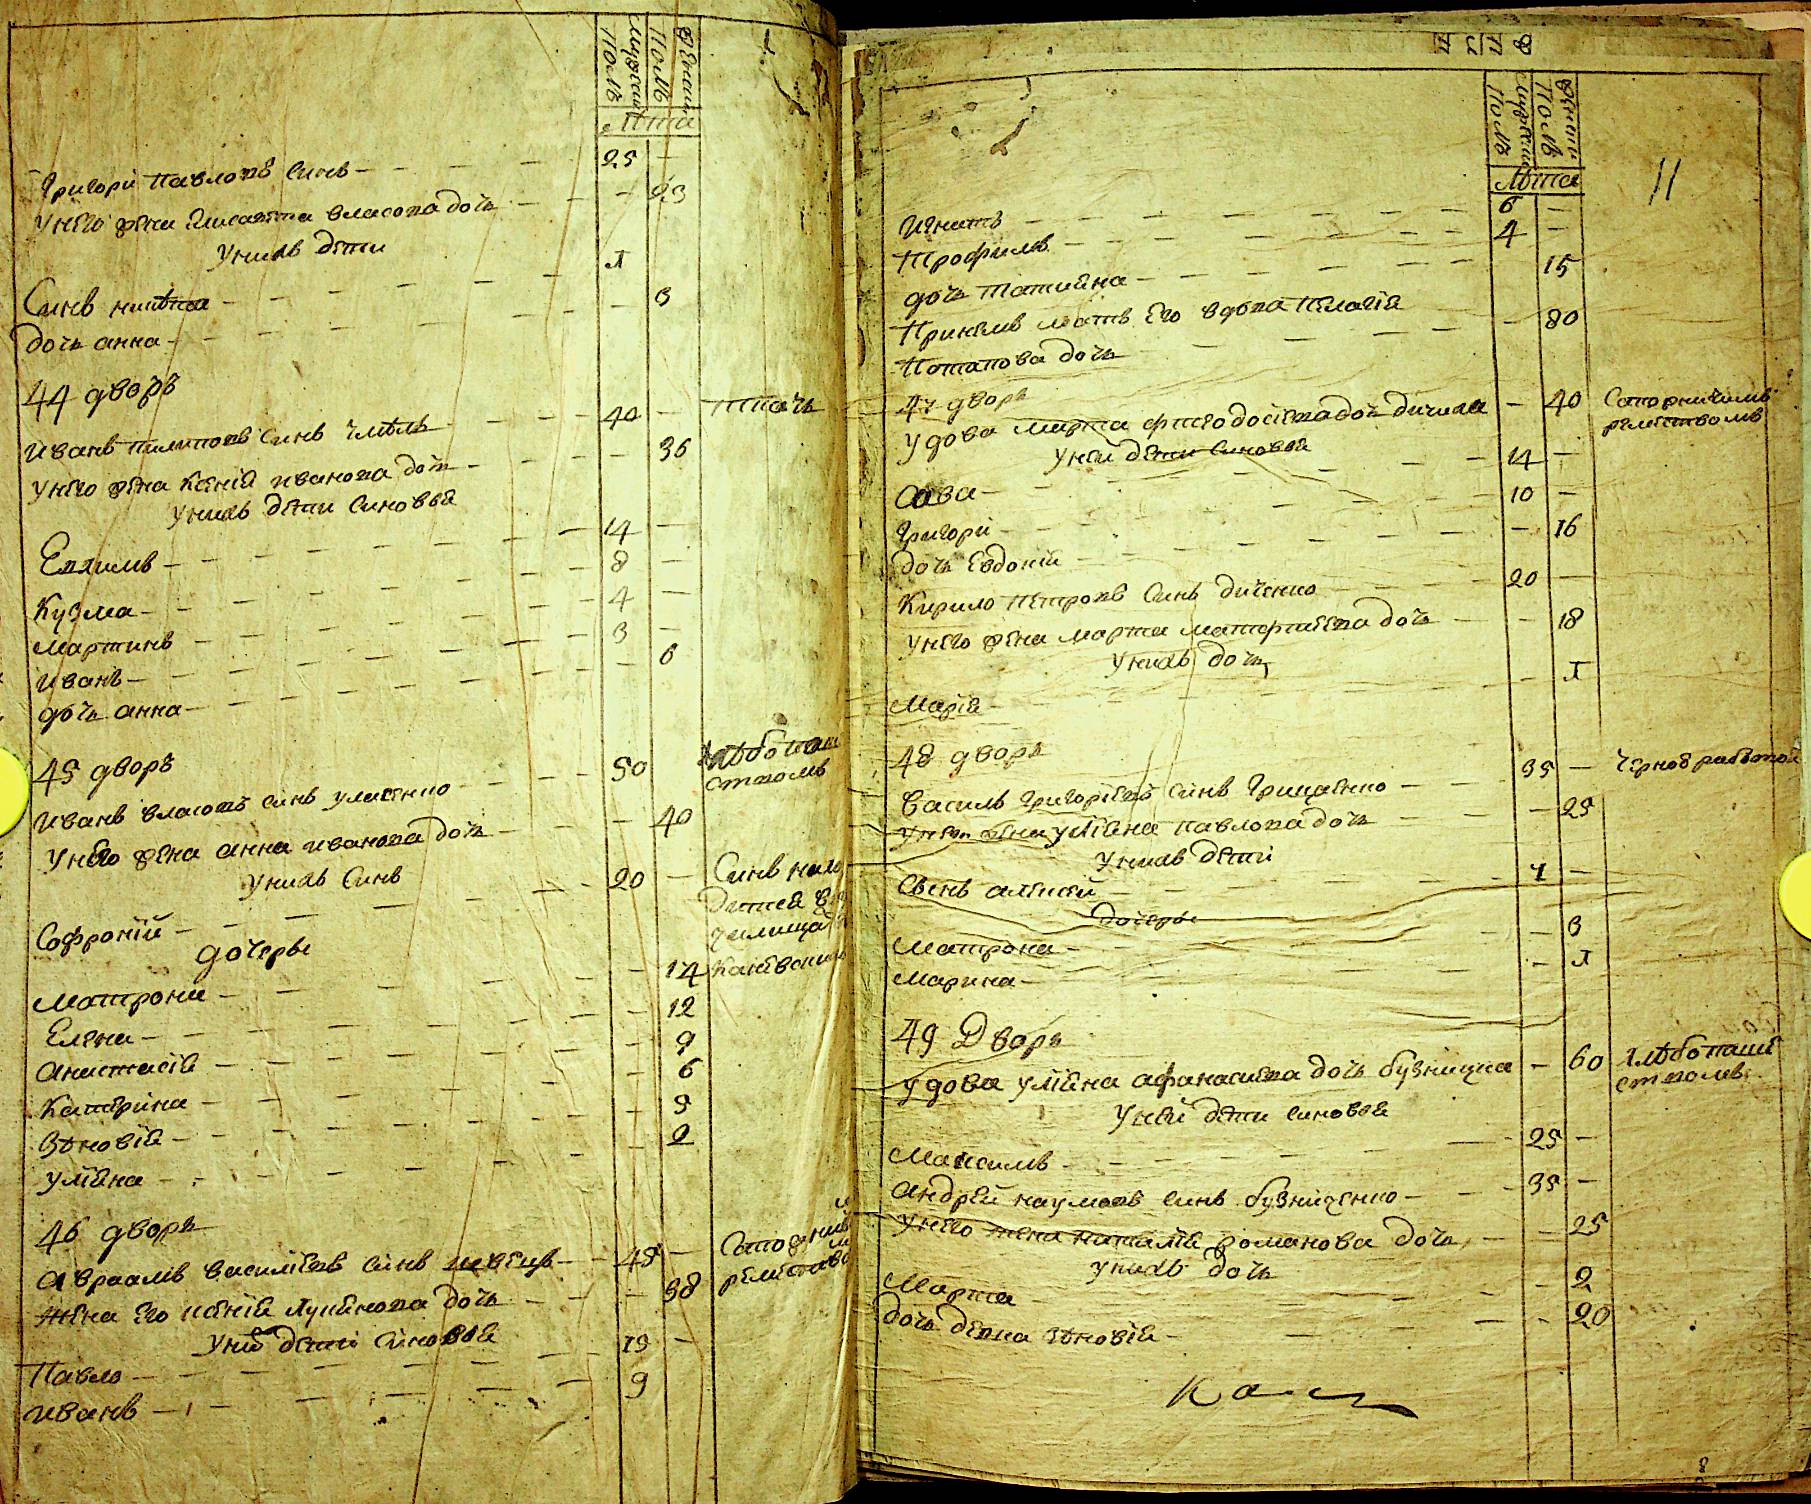 мужеска полъ
женска полъ
лѣта
Григори Павловъ синъ 25
Унего жена Елисавета власова дочъ 23
Унихъ дети
Синъ никита 1
Дочъ анна 3
44 дворъ
Иванъ Пилиповъ синъ чмѣль 40 ткачъ
Унего жена Ксенїя иванова дочъ 36
Унихъ дети синовья
Евхимъ 14
Кузма 8
Мартинъ 4
Иванъ 3
дочъ анна 6
45 дворъ
Иванъ власовъ синъ уласенко 50 хлѣбопаш
ством
Унего жена анна иванова дочъ 40
Унихъ Синъ
Софронїй 20 Синъ
дочеры
Матрона 14
Елена 12
Анастасїя 9
Катерина 6
Зѣновїя 5
Улїяна 2
46 дворъ
Авраамъ василїевъ синъ швецъ 45
Жена его Ксенїя Лукянова дочъ 38
Унихъ дети синовья
Павло 15
Иванъ 9
мужеска полъ
женска полъ
лѣта
11
Игнатъ 6
Трофимъ 4
дочъ татияна 15
Принемъ мать его вдова Пелагїя
Потапова дочъ 80
47 дворъ
Удова марта дочъ 40
Унеи дети синовья
Сава 14
Григори 10
дочъ Евдокїя 16
Кирило Петровъ Синъ диченко 20
Унего жена марта матфиева дочъ 18
Унихъ дочъ
Марїя 1
48 дворъ
Василь Григорїевъ синъ Грищенко 35 Черноѣ работой
Унего жена улїяна павлова дочъ 25
Унихъ дети
Синъ алексїй 4
дочеры
Матрона 3
Марина 1
49 Дворъ
Удова улїяна афанасиева дочъ бузницка 60 хлѣбопаше
ством
Унеи дети синовья
Максимъ 25
Андрей наумовъ синъ бузниценко 35
Унего жена наталїя романова дочъ 25
Унихъ дочъ
Марта 2
дочъ девка зѣновїя 20